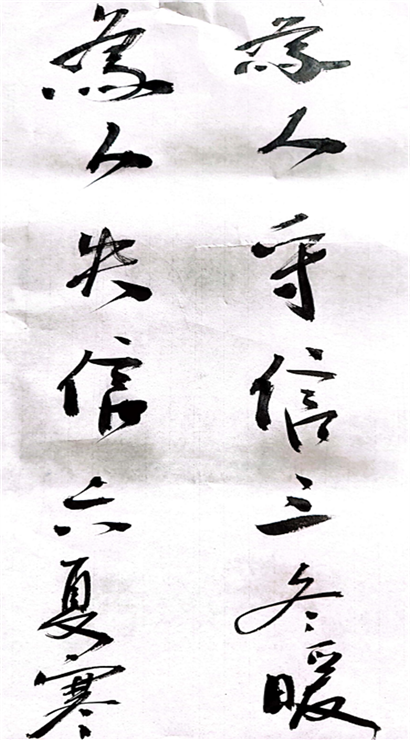 為人守信三冬暖
為人失信六夏寒